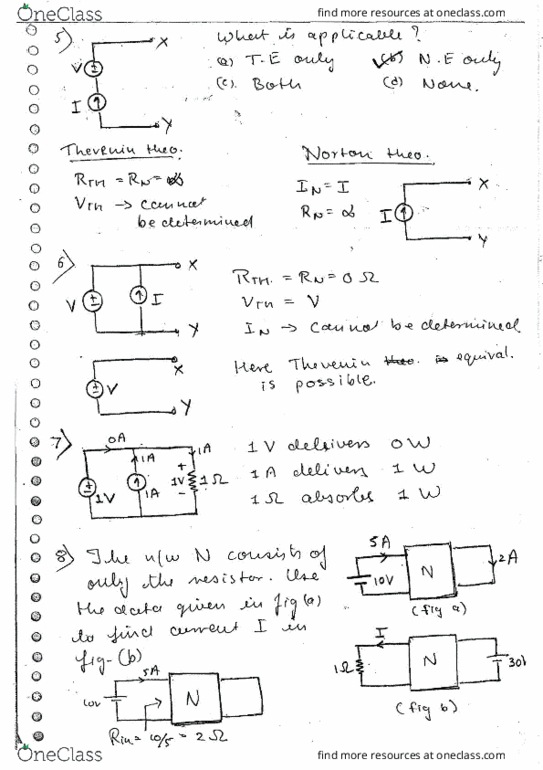 OneClass
find more resources at oneclass.com
5) What is applicable?
(a) T.E only (b) N.E only
(c). Both (d) None.
V
I
X
Y
Thevenin theo.
RTH = RN = ∞
VTH → cannot
be determined
Norton theo.
IN = I
RN = ∞
I
X
Y
6)
V
I
X
Y
RTH. = RN = 0 Ω
VTH = V
IN → Cannot be determined
V
X
Y
Here Thevenin is equival.
is possible.
7)
0A
1A
1A
1V
1A
+
1V
-
1Ω
1V delivers 0W
1A delivers 1W
1Ω absorbs 1W
8) The n/w N consists of
only the resistor. Use
the data given in fig(a)
to find current I in
fig-(b)
5A
10V
N
2A
(fig a)
I
1Ω
N
30V
(fig b)
10V
5A
N
Rin = 10/5 = 2Ω
OneClass
find more resources at oneclass.com